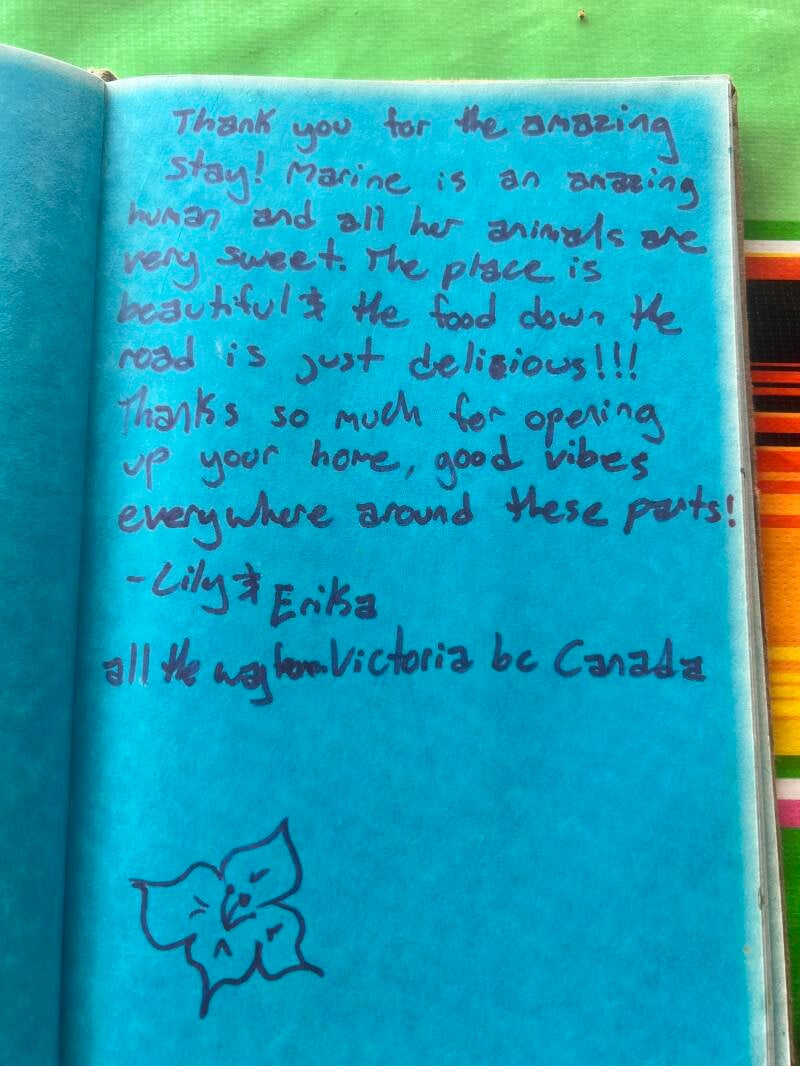 Thank you for the amazing
stay! Marine is an amazing
human and all her animals are
very sweet. The place is
beautiful & the food down the
road is just delicious!!!
Thanks so much for opening
up your home, good vibes
everywhere around these parts!
-Lily & Erika
all the way from Victoria bc Canada